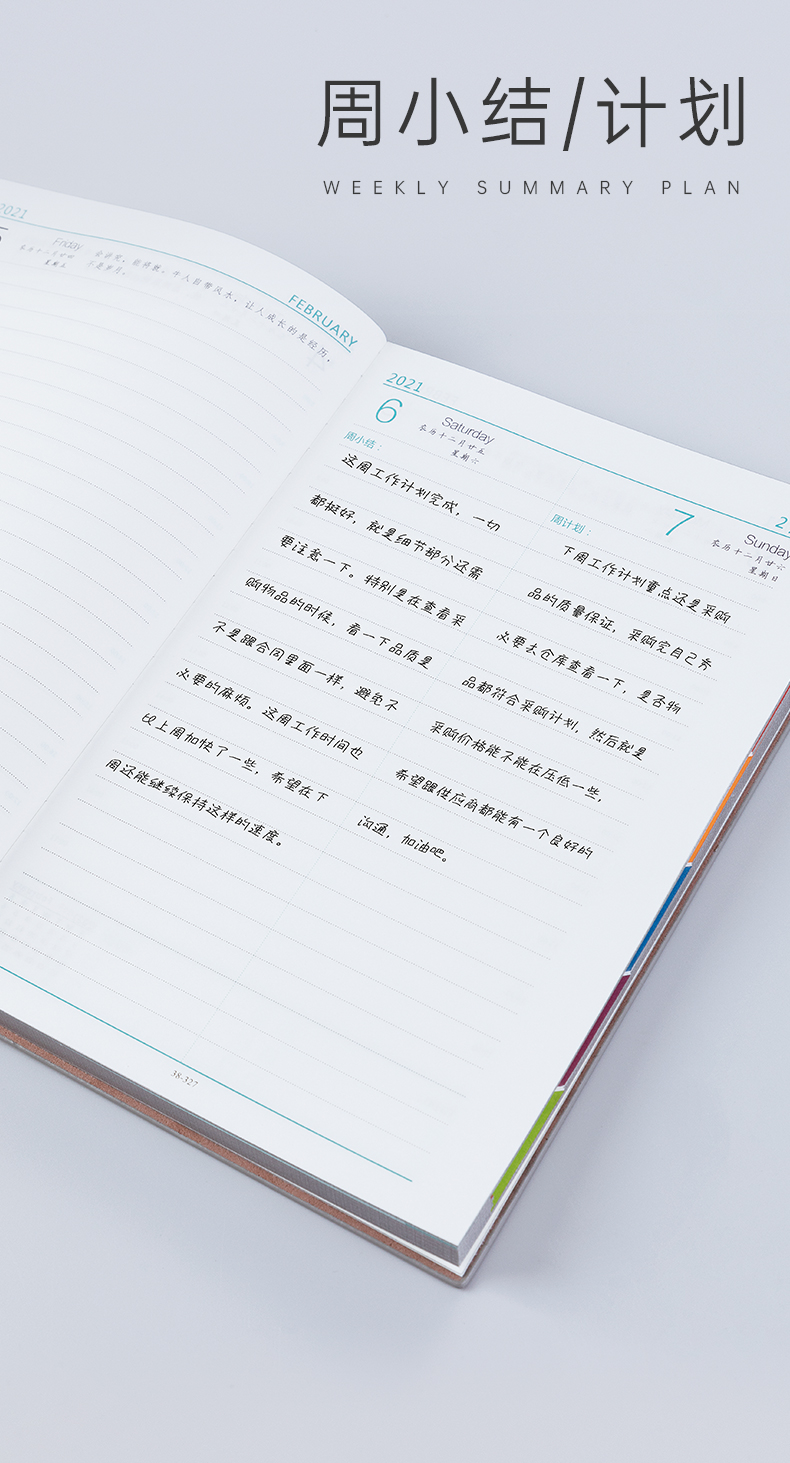 周小结/计划
WEEKLY SUMMARY PLAN
2021
Friday
农历十二月廿四
星期五
年人自带风水，让人成长的是经历，
不是岁月。
FEBRUARY
2021
6
Saturday
农历十二月廿五
星期六
周小结：
这周工作计划完成，一切
都挺好，就是细节部分还需
要注意一下。特别是在查看采
购物品的时候，看一下品质是
不是跟合同里面一样，避免不
必要的麻烦。这周工作时间也
比上周加快了一些，希望在下
周还能继续保持这样的速度。
7
Sunday
农历十二月廿六
星期日
周计划：
下周工作计划重点还是采购
品的质量保证，采购完自己务
必要去仓库查看一下，是否物
品都符合采购计划，然后就是
采购价格能不能在压低一些，
希望跟供应商都能有一个良好的
沟通，加油吧。
38-327